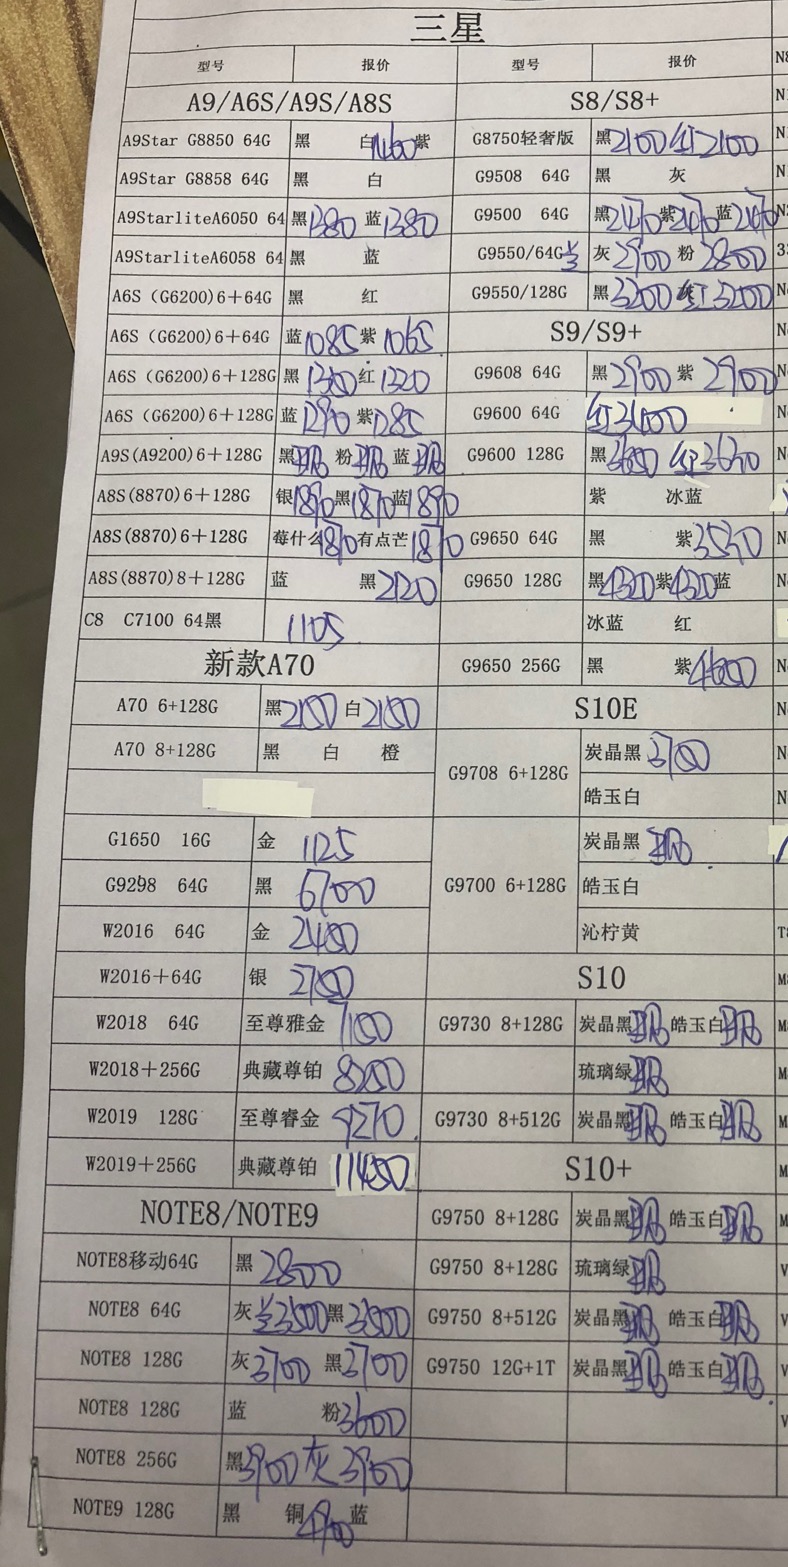 三星
型号 报价 型号 报价
A9/A6S/A9S/A8S S8/S8+
A9Star G8850 64G 黑 白1460紫 G8750轻奢版 黑2100 红2100
A9Star G8858 64G 黑 白 G9508 64G 黑 灰
A9StarliteA6050 64 黑1380 蓝1380 G9500 64G 黑2470紫2470蓝2470
A9StarliteA6058 64 黑 蓝 G9550/64G 灰2900 粉2800
A6S (G6200)6+64G 黑 红 G9550/128G 黑3200 红3200
A6S (G6200)6+64G 蓝1085 紫1065 S9/S9+
A6S (G6200)6+128G 黑1300 红1320 G9608 64G 黑2900 紫2900
A6S (G6200)6+128G 蓝1290 紫1285 G9600 64G 红
A9S(A9200)6+128G 黑 粉 蓝 G9600 128G 黑 红
A8S(8870)6+128G 银1890黑1870蓝1890 紫 冰蓝
A8S(8870)6+128G 莓什么1870有点芒1870 G9650 64G 黑 紫3530
A8S(8870)8+128G 蓝 黑2120 G9650 128G 黑4320紫4320蓝
C8 C7100 64黑 1105 冰蓝 红
新款A70 G9650 256G 黑 紫
A70 6+128G 黑 白 S10E
A70 8+128G 黑 白 橙 G9708 6+128G 炭晶黑 3700
皓玉白
G1650 16G 金 1125 G9700 6+128G 炭晶黑
G9298 64G 黑 6700 皓玉白
W2016 64G 金 沁柠黄
W2016+64G 银 S10
W2018 64G 至尊雅金 G9730 8+128G 炭晶黑 皓玉白
W2018+256G 典藏尊铂 琉璃绿
W2019 128G 至尊睿金 9270 G9730 8+512G 炭晶黑 皓玉白
W2019+256G 典藏尊铂 11450 S10+
NOTE8/NOTE9 G9750 8+128G 炭晶黑 皓玉白
NOTE8移动64G 黑 2800 G9750 8+128G 琉璃绿
NOTE8 64G 灰 3500黑3500 G9750 8+512G 炭晶黑 皓玉白
NOTE8 128G 灰3700 黑3700 G9750 12G+1T 炭晶黑 皓玉白
NOTE8 128G 蓝 粉3600
NOTE8 256G 黑3900 灰 3900
NOTE9 128G 黑 铜 蓝